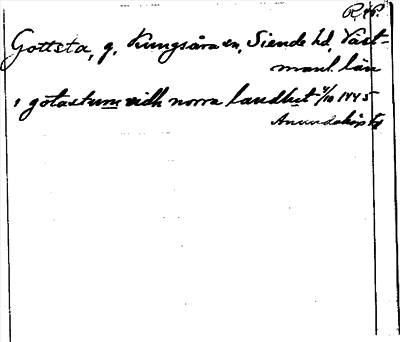 R.A.P.
Gottsta, g, Kungsåra sn, Siende hd, Väst-
manl. län
i gotastum vidh norra landhit 4/10 1445
Anundsköp